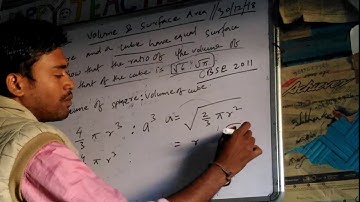 Volume & Surface Area //30/12/18
and a cube have equal surface
how that the ratio of the volume of
that of the cube is √6 : √π
CBSE 2011
volume of sphere : volume of cube
4/3 π r³ : a³ a = √(2/3 π r²)
4/3 π r³ : = r